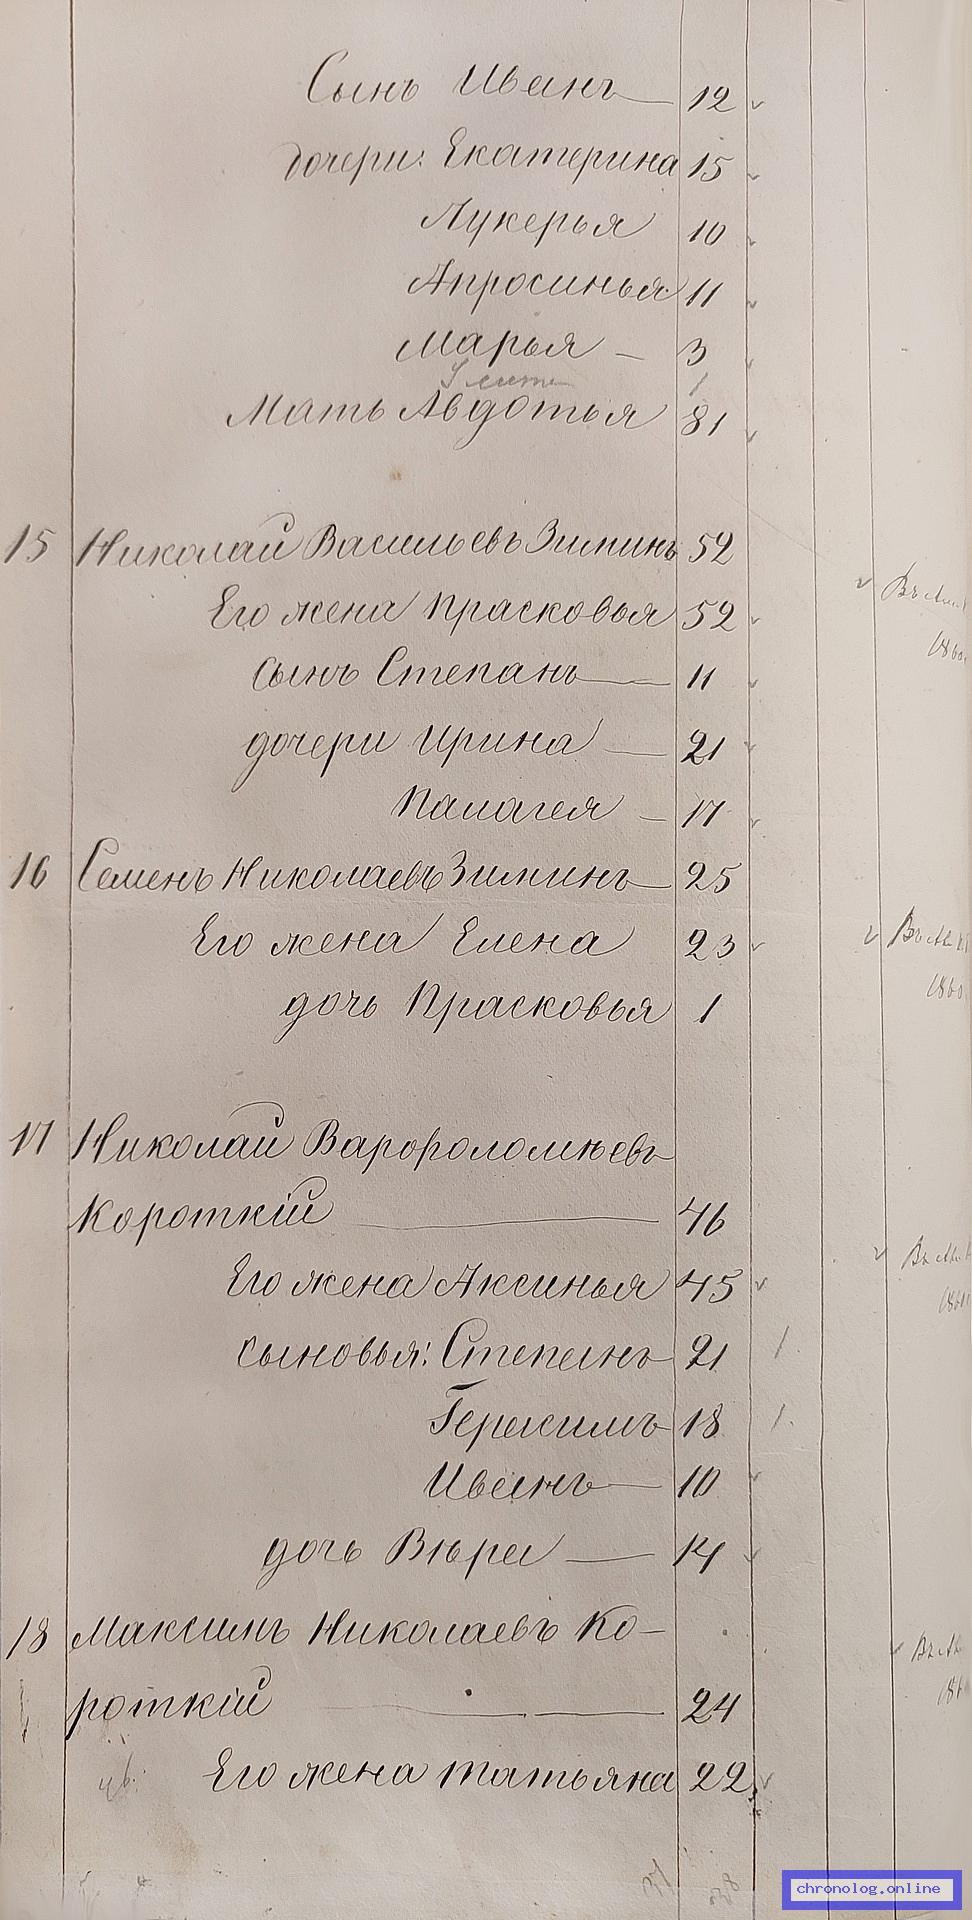 Сынъ Иванъ 12
дочери: Екатерина 15
Лукерья 10
Апросинья 11
Марья 3
1
Мать Авдотья 81
15 Николай Васильевъ Зиминъ 52
Его жена Прасковья 52
Въ
сынъ Степанъ 11
дочери Ирина 21
Палагея 17
16 Семенъ Николаевъ Зиминъ 25
Его жена Елена 23
Въ
дочь Прасковья 1
17 Николай Варфоломѣевъ
Короткій 46
Его жена Аксинья 45
Въ
сыновья: Степанъ 21
Герасимъ 18
Иванъ 10
дочь Вѣра 14
18 Максимъ Николаевъ Ко-
роткій 24
Его жена Татьяна 22
37 38
chronolog.online